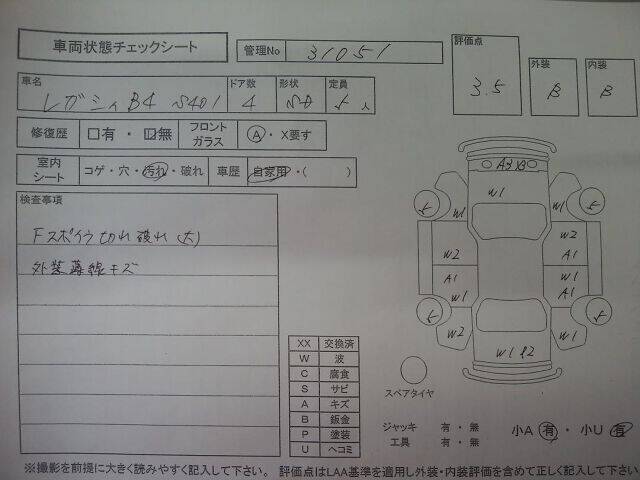 車両状態チェックシート
管理No 31051
評価点 3.5
外装 B
内装 B
車名 レガシィB4 S401
ドア数 4
形状 SD
定員 5人
修復歴 □有・☑無
フロントガラス A・X要す
室内シート コゲ・穴・汚れ・破れ
車歴 自家用・( )
検査事項
Fスポイラ切れ破れ(大)
外装薄線キズ
A3 XB
W1
5 W1 W1 5
W2 W2
A1
A1 W1
W1 A1
5 5
W2 W1
W1 P2
スペアタイヤ
XX 交換済
W 波
C 腐食
S サビ
A キズ
B 鈑金
P 塗装
U ヘコミ
ジャッキ 有・無
工具 有・無
小A 有・小U 有
※撮影を前提に大きく読みやすく記入して下さい。 評価点はLAA基準を適用し外装・内装評価を含めて正しく記入して下さい